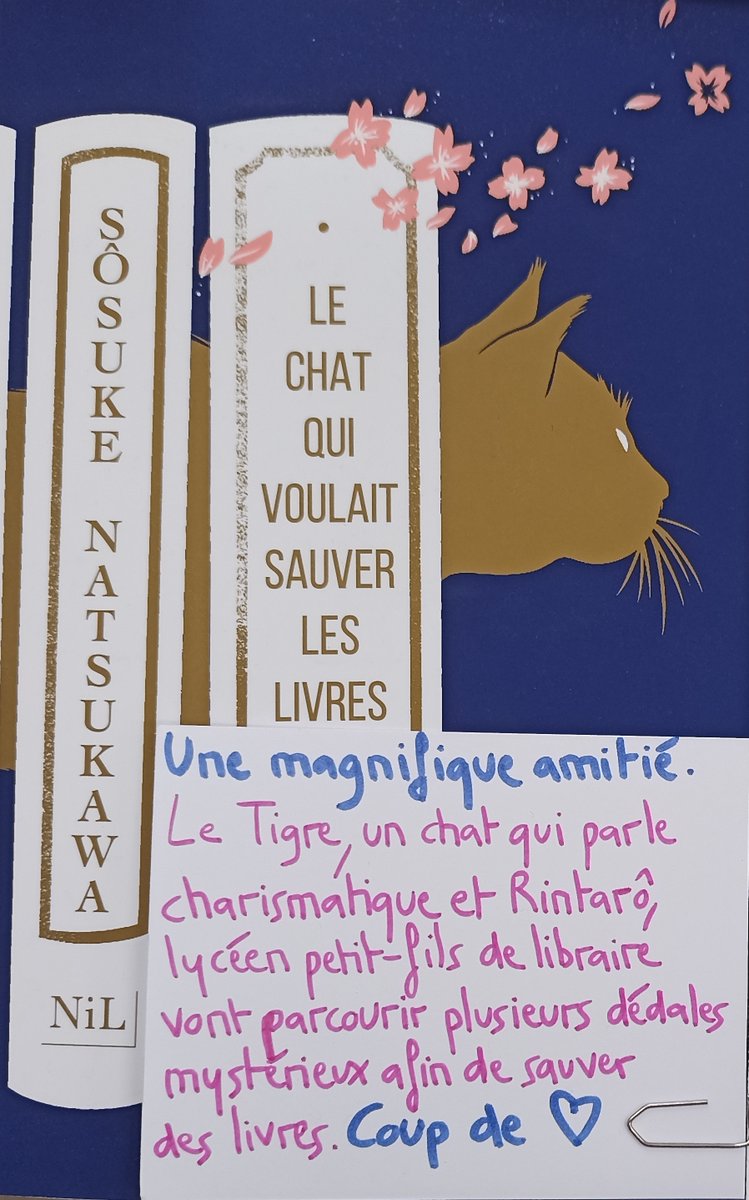 SÔSUKE NATSUKAWA
NiL
LE
CHAT
QUI
VOULAIT
SAUVER
LES
LIVRES
Une magnifique amitié.
Le Tigre, un chat qui parle
charismatique et Rintarô,
lycéen petit-fils de libraire
vont parcourir plusieurs dédales
mystérieux afin de sauver
des livres. Coup de ♡